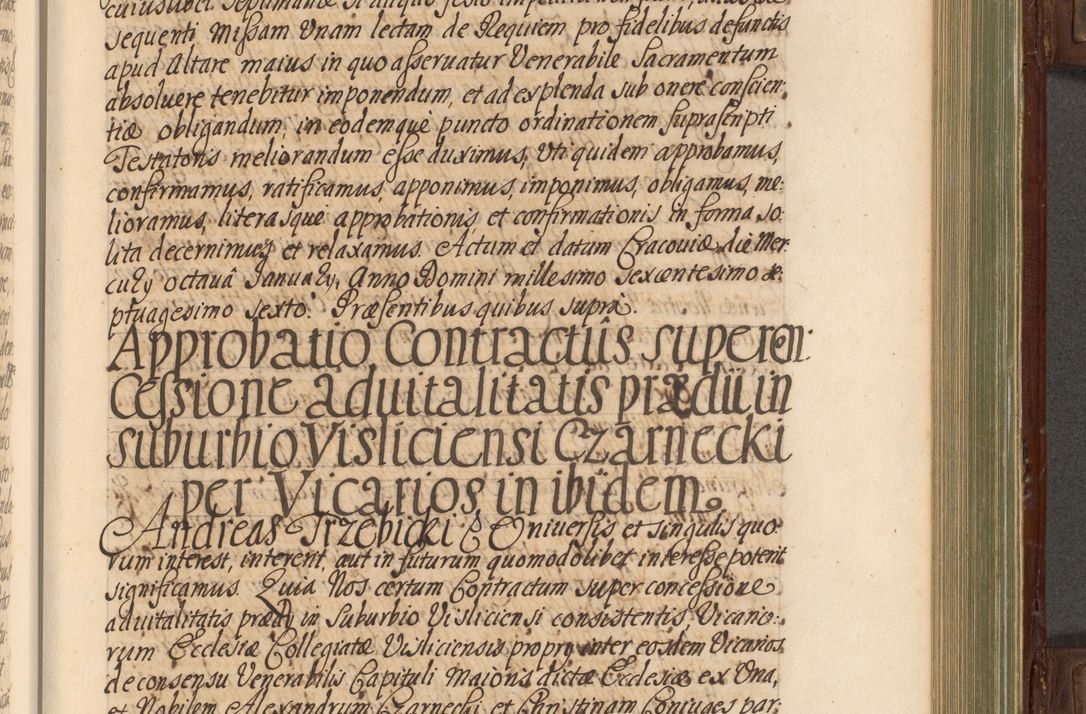 sequenti Missam Unam lectam de Requiem pro fidelibus defunctis
apud Altare maius in quo asseruatur Venerabile Sacramentum
absoluere tenebitur imponendum, et ad explenda sub onere conscien:
tiæ obligandum, in eodemque puncto ordinationem suprascripti
Testatoris meliorandum esse duximus, Uti quidem approbamus,
confirmamus, ratificamus, apponimus, imponimus, obligamus, me:
lioramus, literasque approbationis et confirmationis in forma so:
lita decernimus et relaxamus. Actum et datum Cracoviæ die Mer:
curÿ octauâ Januarÿ, Anno Domini millesimo sexcentesimo se:
ptuagesimo sexto. Præsentibus quibus supra.
Approbatio Contractus super con:
cessione aduitalitatis prædii in
suburbio Visliciensi Czarnecki
per Vicarios in ibidem.
Andreas Trzebicki Etc Universis et singulis quo:
rum interest, intererit, aut in futurum quomodolibet interesse poterit
significamus. Quia Nos certum Contractum super concessione
aduitalitatis prædÿ in Suburbio Visliciensi consistentis, Vicario:
rum Ecclesiæ Collegiatæ Visliciensis propry inter eosdem Vicarios,
de consensu Venerabilis Capituli Maioris dictæ Ecclesiæ ex Una,
et Nobilem Alexandrum Czarnecki et Christinam Coniuges par: